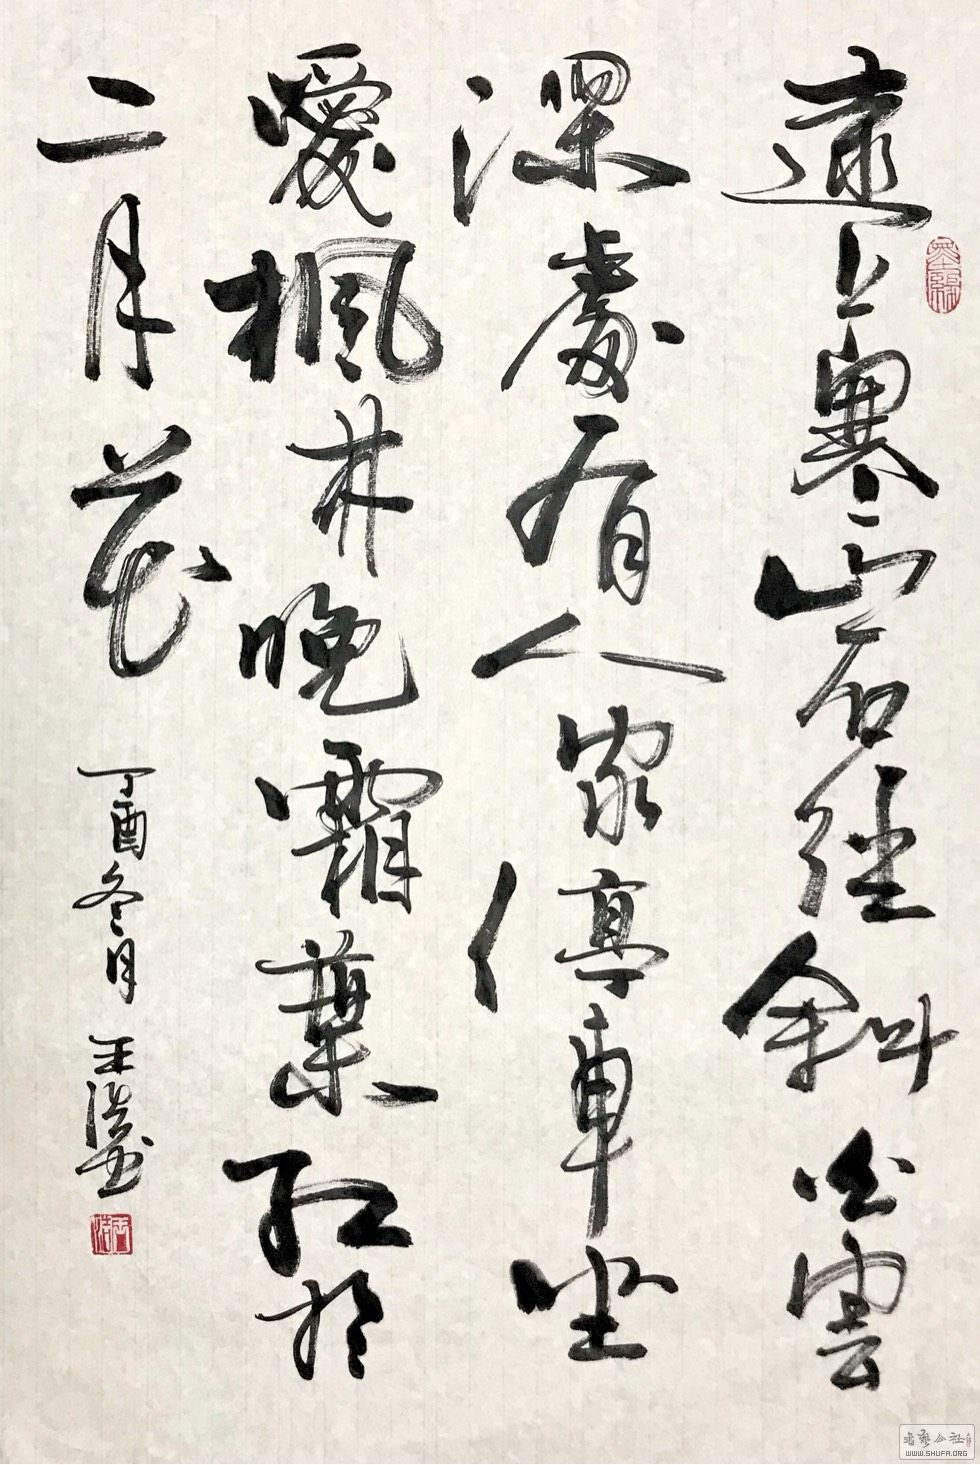 遠上寒山石徑斜白雲
深處有人家停車坐
愛楓林晚霜葉紅於
二月花 丁酉冬月 王浩書
书艺公社
WWW.SHUFA.ORG